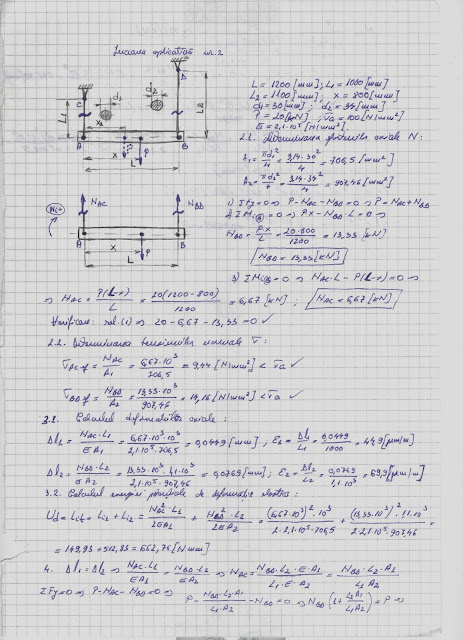 Lucrarea aplicativă nr. 2
C
D
d₁
d₂
L₁
L₂
x
A
B
x
P
L
L = 1200 [mm]; L₁ = 1000 [mm]
L₂ = 1100 [mm], x = 800 [mm]
d₁ = 30 [mm]; d₂ = 34 [mm]
P = 20 [kN], σa = 100 [N/mm²]
E = 2,1·10⁵ [N/mm²].
2.1. Determinarea axiale N:
A₁ = πd₁²/4 = 3,14·30²/4 = 706,5 [mm²]
A₂ = πd₂²/4 = 3,14·34²/4 = 907,46 [mm²]
N_AC
N_BD
M(+)
A
B
x
P
L
1) ΣFy=0 ⇒ P-N_AC-N_BD=0 ⇒ P=N_AC+N_BD
2) ΣM(A)=0 ⇒ Px-N_BD·L=0 ⇒
N_BD = Px/L = 20·800/1200 = 13,33 [kN]
N_BD = 13,33 [kN]
3) ΣM(B)=0 ⇒ N_AC·L-P(L-x)=0 ⇒
⇒ N_AC = P(L-x)/L = 20(1200-800)/1200 = 6,67 [kN]; N_AC = 6,67 [kN]
Verificare: rel.(1) ⇒ 20-6,67-13,33=0 ✓
2.2. Determinarea tensiunilor normale σ:
σ_AC ef = N_AC/A₁ = 6,67·10³/706,5 = 9,44 [N/mm²] < σa ✓
σ_BD ef = N_BD/A₂ = 13,33·10³/907,46 = 14,16 [N/mm²] < σa ✓
3.1. Calculul deformațiilor axiale:
Δl₁ = N_AC·L₁/EA₁ = 6,67·10³·10³/2,1·10⁵·706,5 = 0,0449 [mm]; ε₁ = Δl₁/L₁ = 0,0449/1000 = 44,9 [μm/m]
Δl₂ = N_BD·L₂/EA₂ = 13,33·10³·1,1·10³/2,1·10⁵·907,46 = 0,0769 [mm]; ε₂ = Δl₂/L₂ = 0,0769/1,1·10³ = 69,9 [μm/m]
3.2. Calculul energiei potențiale de deformație elastică:
Ud = Ld = L₁+L₂ = N_AC²·L₁/2EA₁ + N_BD²·L₂/2EA₂ = (6,67·10³)²·10³/2·2,1·10⁵·706,5 + (13,33·10³)²·1,1·10³/2·2,1·10⁵·907,46 =
= 149,93+512,83 = 662,76 [N mm]
4. Δl₁=Δl₂ ⇒ N_AC·L₁/EA₁ = N_BD·L₂/EA₂ ⇒ N_AC = N_BD·L₂·E·A₁/L₁·E·A₂ = N_BD·L₂·A₁/L₁A₂
ΣFy=0 ⇒ P-N_AC-N_BD=0 ⇒
P - N_BD·L₂A₁/L₁A₂ - N_BD = 0 ⇒ N_BD(1+L₂A₁/L₁A₂) = P ⇒